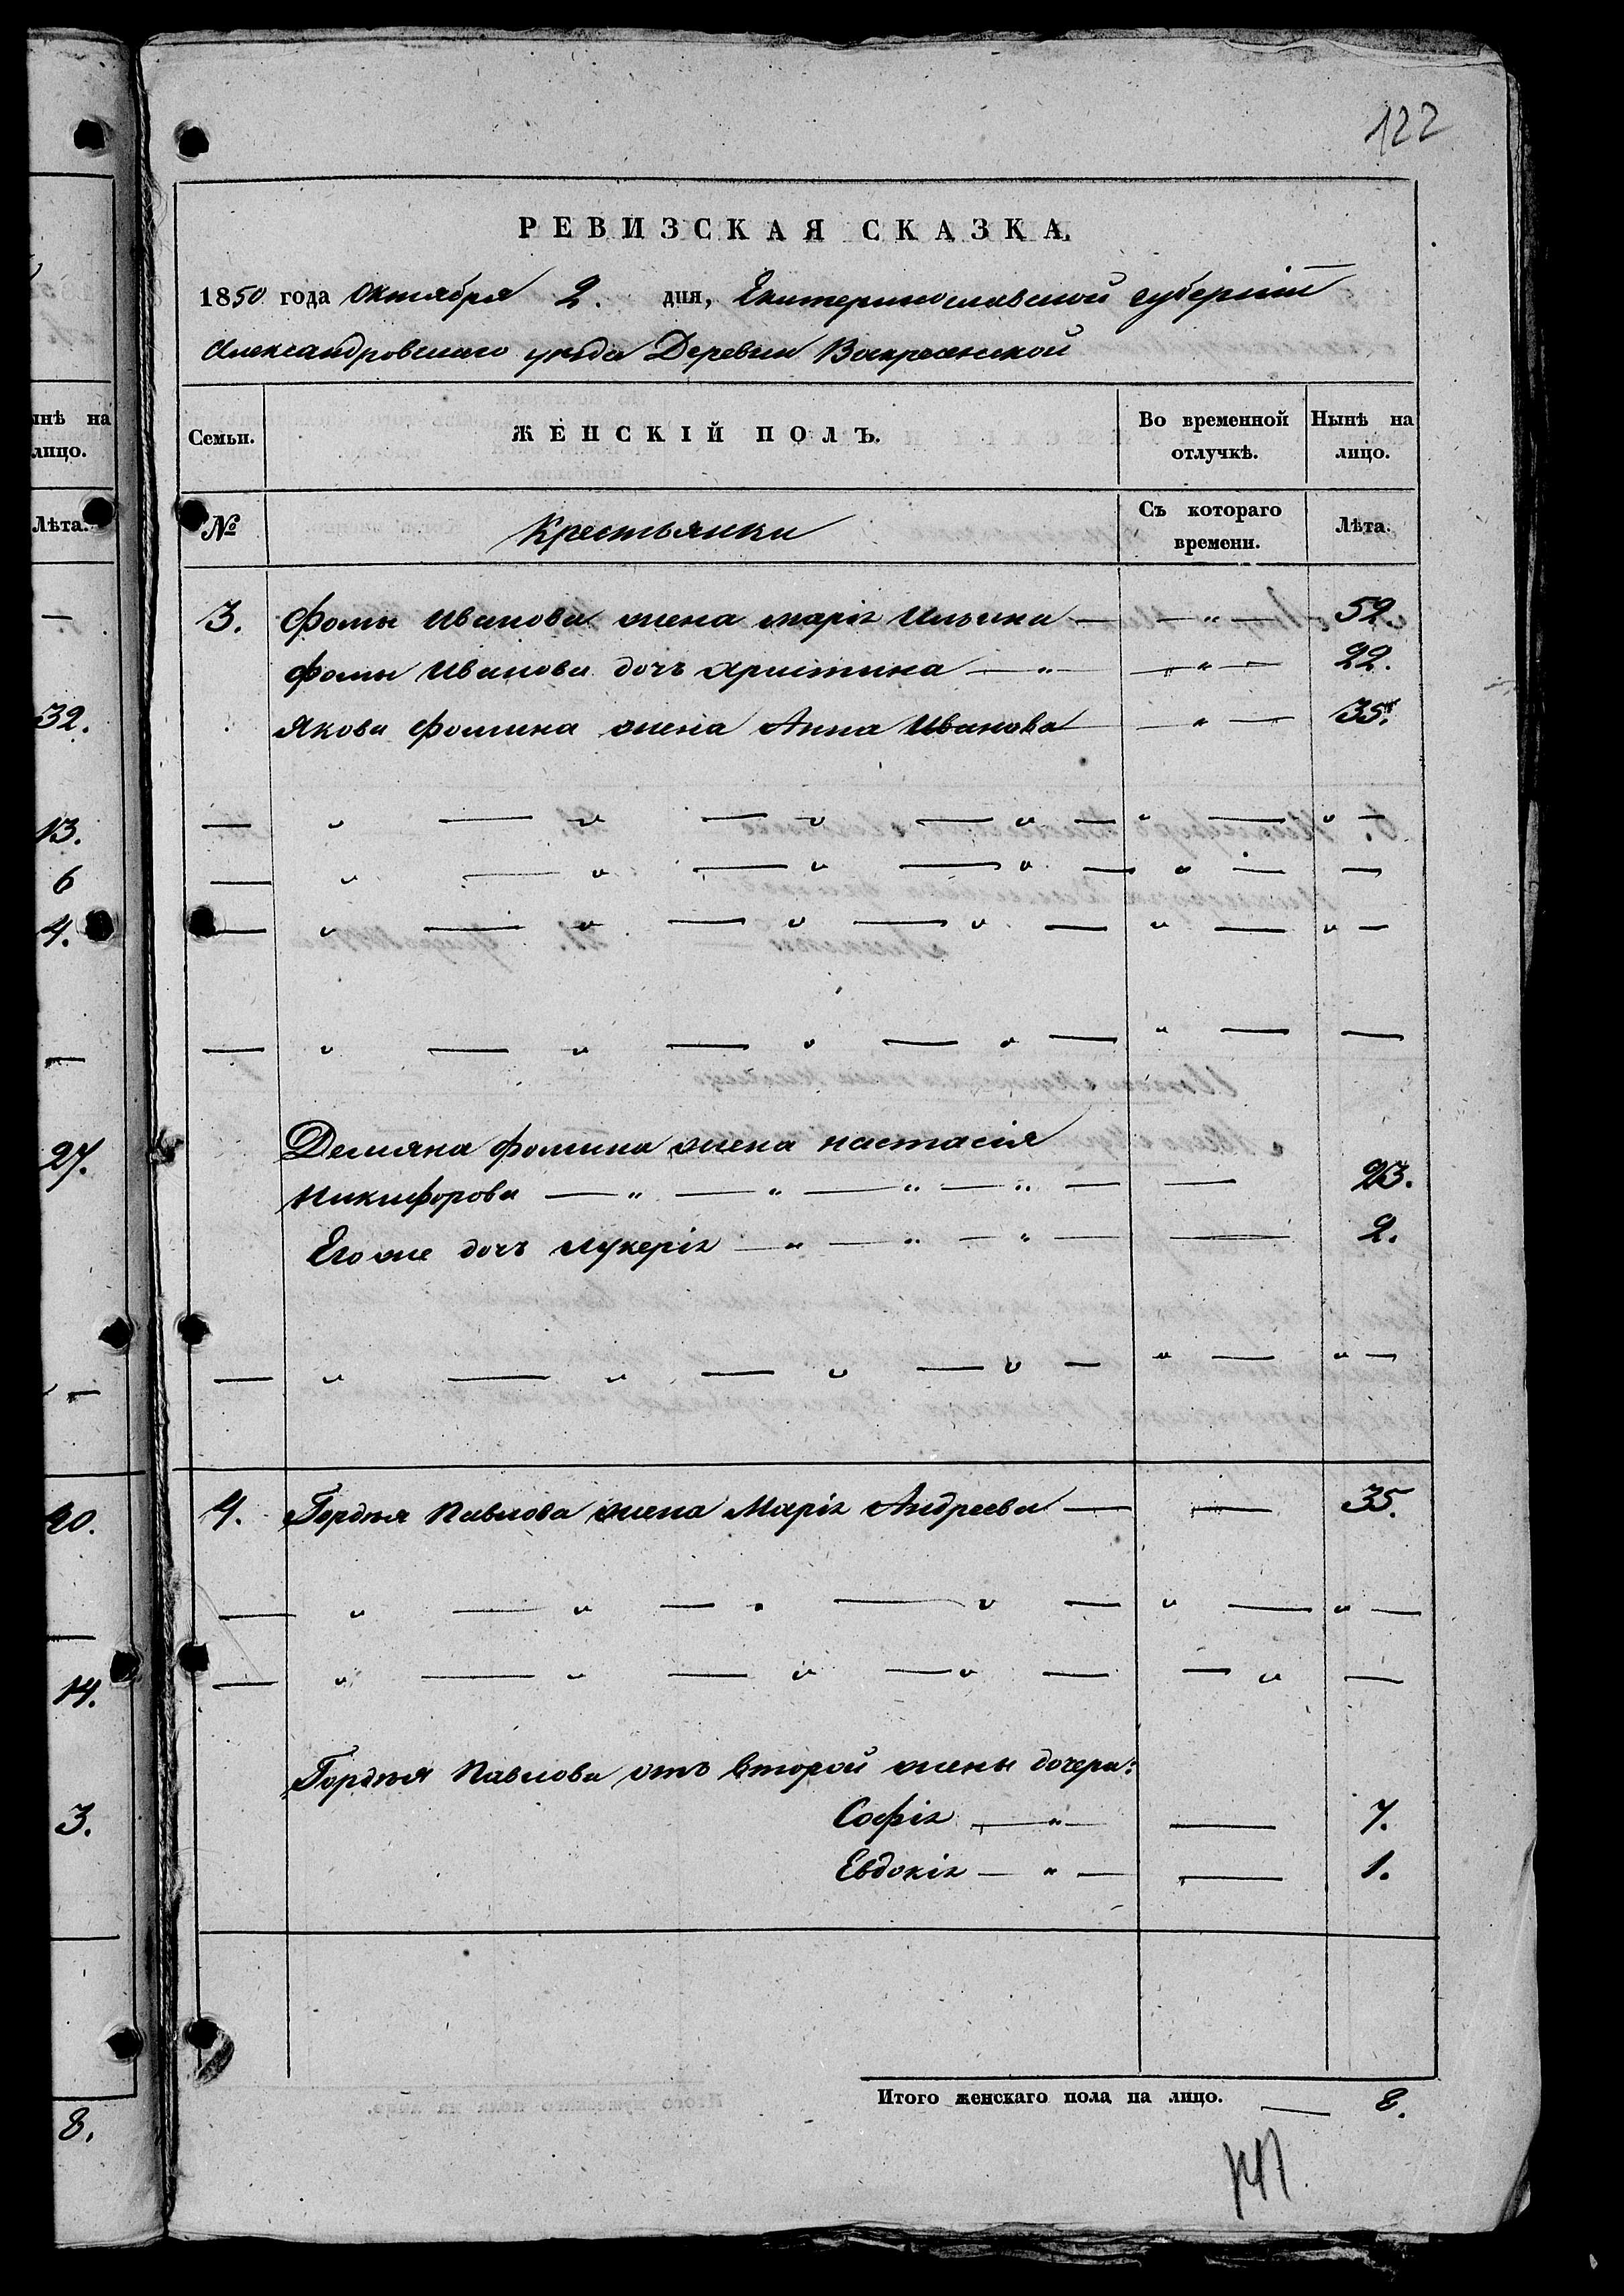 122
РЕВИЗСКАЯ СКАЗКА.
1850 года Октября 2. дня, Екатеринославской губерніи
Александровскаго уезда Деревни Воскресенской
Семьи. ЖЕНСКІЙ ПОЛЪ. Во временной отлучкѣ. Нынѣ на лицо.
№ Крестьянки Съ котораго времени. Лѣта.
3. Фомы Иванова жена марія Ильина — — " — 52.
Фомы Иванова дочь христина — " — " — 22.
Якова Фомина жена Анна Иванова — " — 35.
— " — " — " — " — " — " —
— " — " — " — " — " — —
— " — " — " — " — " — " —
— " — " — " — " — " — —
Демяна Фомина жена настасія
Никифорова — " — " — " — " — — 23.
Его же дочь лукерія — " — " — " — — 2.
— " — " — " — " — " — " —
4. Гордѣя Павлова жена Марія Андреева — — 35.
— " — " — " — " — " — " —
— " — " — " — " — — " —
Гордѣя Павлова отъ второй жены дочери:
Софія — " — — 7.
Евдокія — " — — 1.
Итого женскаго пола на лицо. — 8.
ынѣ на
лицо.
Лѣта.
—
32.
13.
6
4.
—
27.
" —
20.
—
14.
3.
8.